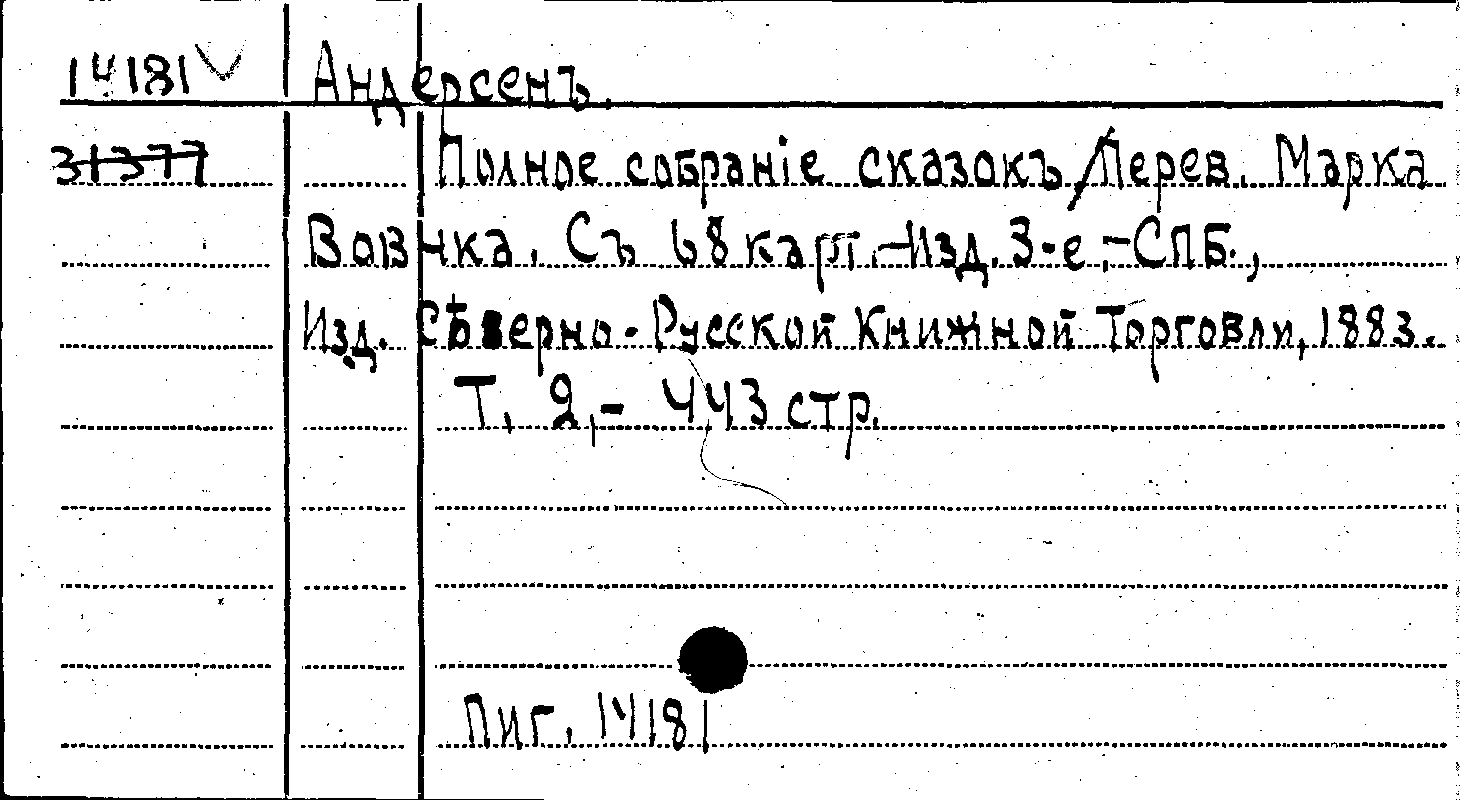 14181 V Андерсенъ.
31377 Полное собраніе сказокъ / Перев. Марка
Вовчка. Съ 68 карт.-Изд. 3-е,-СПБ.,
Изд. Сѣверно-Русской Книжной Торговли, 1883.
Т. 2,- 443 стр.
Пиг. 14181